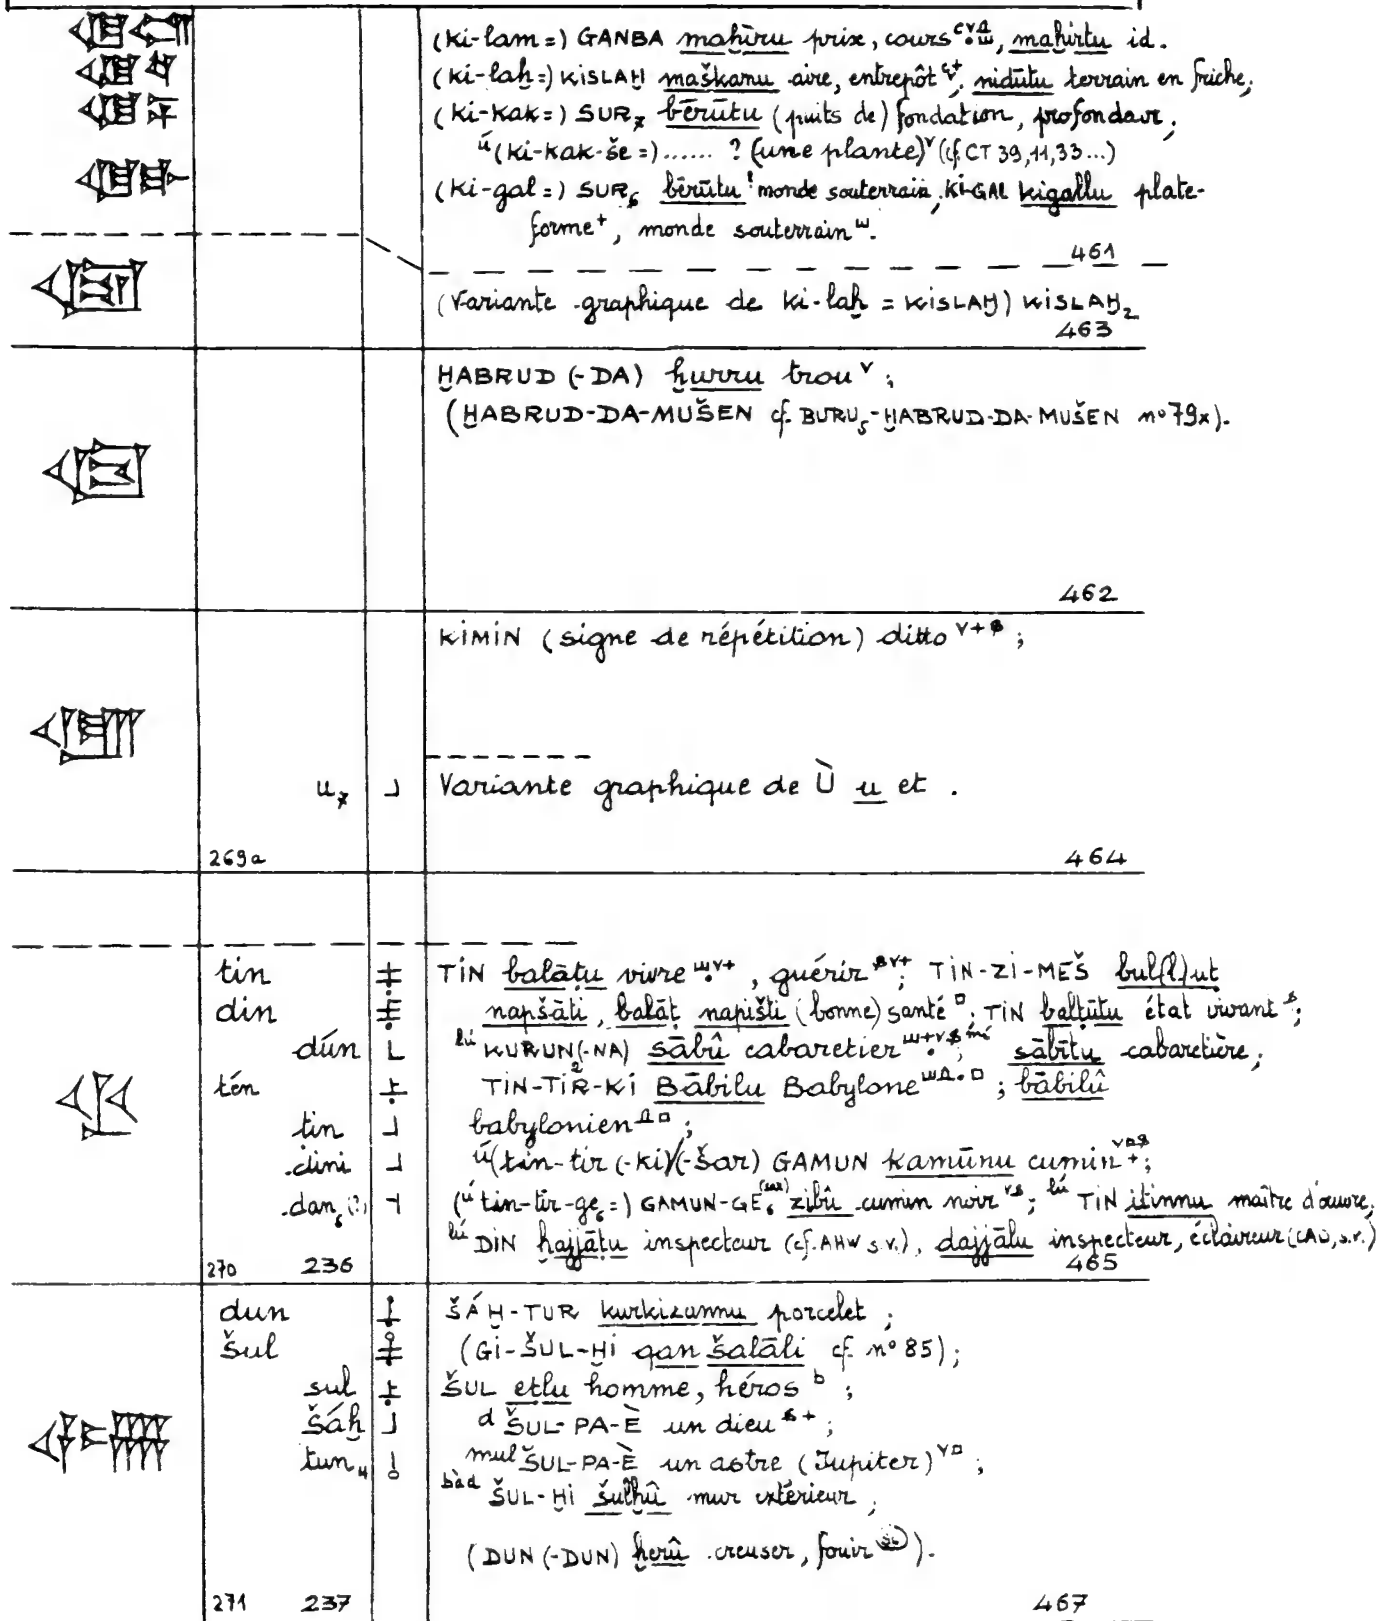 (ki-lam=) GANBA maḫīru prix, cours, maḫirtu id.
(ki-laḫ=) KISLAḪ maškanu aire, entrepôt, nidûtu terrain en friche;
(ki-kak=) SUR₇ bērūtu (puits de) fondation, profondeur;
ú(ki-kak-še=)...... ? (une plante)ᵛ (cf. CT 39,11,33...)
(ki-gal=) SUR₆ bērūtu! monde souterrain, KI-GAL kigallu plate-
forme⁺, monde souterrain.
461
(Variante graphique de ki-laḫ = KISLAḪ) KISLAḪ₂
463
ḪABRUD (-DA) ḫurru trouᵛ;
(ḪABRUD-DA-MUŠEN cf. BURU₅-ḪABRUD-DA-MUŠEN n° 79x).
462
KIMIN (signe de répétition) ditto;
u₇ Variante graphique de Ù u et .
269a 464
tin TIN balāṭu vivre, guérir; TIN-ZI-MEŠ bul(l)uṭ
din napšāti, balāṭ napišti (bonne) santé. TIN balṭūtu état vivant;
dún lú KURUN₂(-NA) sābû cabaretier; mí sābītu cabaretière;
tén TIN-TIR-KI Bābilu Babylone; bābilû
tin babylonien;
dini ú(tin-tir(-ki)/(-šar) GAMUN kamūnu cumin;
dan₆(?) (ú tin-tir-ge₆=) GAMUN-GE₆(sar) zibû cumin noir; lú TIN itinnu maître d'œuvre,
lú DIN ḫajjāṭu inspecteur (cf. AHW s.v.), dajjālu inspecteur, éclaireur (CAD, s.v.)
270 236 465
dun ŠÁḪ-TUR kurkizannu porcelet;
šul (GI-ŠUL-ḪI qan šalāli cf. n° 85);
sul ŠUL eṭlu homme, hérosᵇ;
šáḫ d ŠUL-PA-È un dieu;
tun₄ mul ŠUL-PA-È un astre (Jupiter);
bàd ŠUL-ḪI šulḫû mur extérieur;
(DUN (-DUN) ḫerû creuser, fouir).
271 237 467